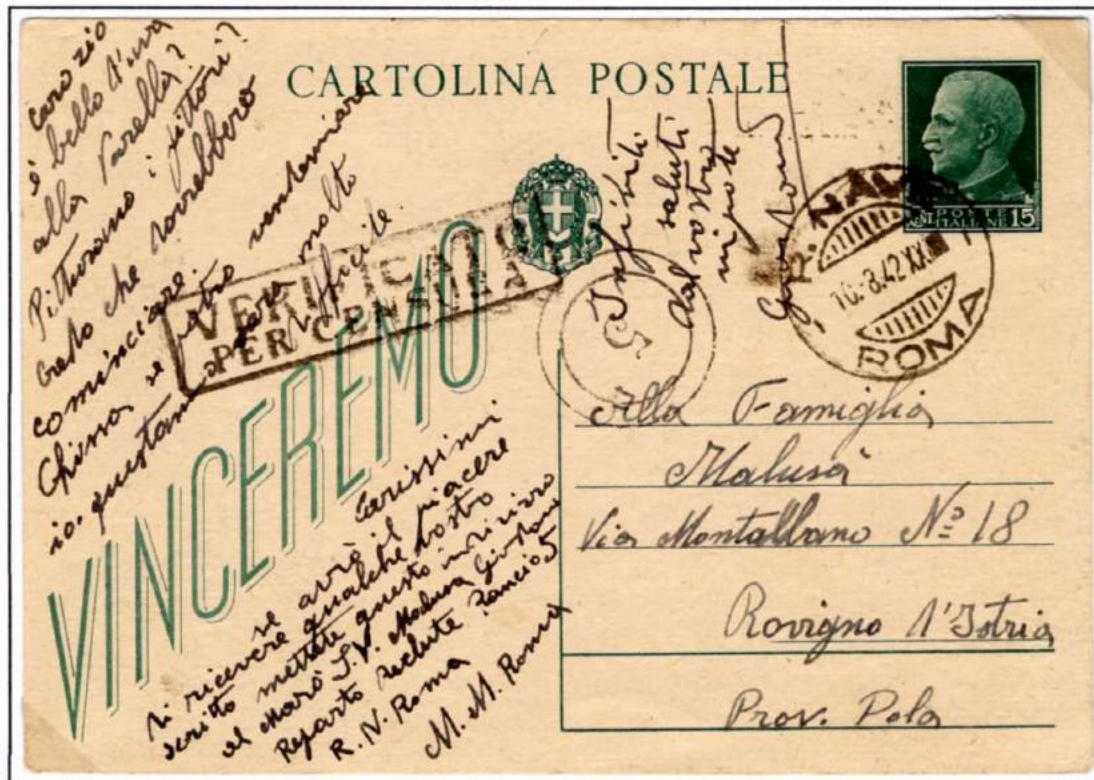 CARTOLINA POSTALE
POSTE
ITALIANE
15
VINCEREMO
VERIFICATO
PER CENSURA
R. NAVE
10.-8.42 XX
ROMA
5
caro zio
è bello l'uva
alla Varella?
Pitturano i pittori?
Credo che dovrebbero
cominciare.
Chissà se potrò vendemiare
io, quest'anno sarà molto
difficile.
Infiniti
saluti
dal vostro
nipote
Carissimi
se avrò il piacere
di ricevere qualche vostro
scritto mettete questo indirizzo
al Marò S.V. Malusa Giordano
Reparto reclute Rancio 5
R. N. Roma
M. M. Roma
Alla Famiglia
Malusà
Via Montalbano Nº 18
Rovigno d'Istria
Prov. Pola